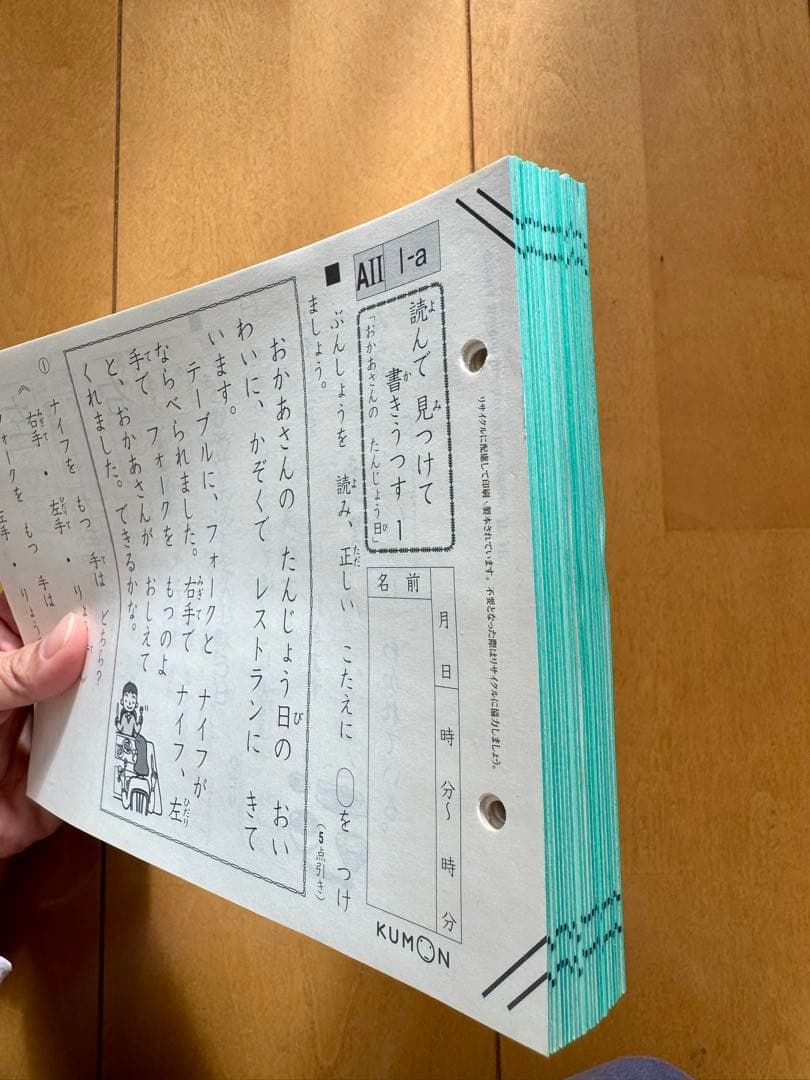 AII 1-a
読んで 見つけて
書きうつす 1
「おかあさんの たんじょう日」
月 日 時 分〜 時 分
名前
リサイクルに配慮して印刷、製本されています。不要となった際はリサイクルに協力しましょう。
KUMON
■ ぶんしょうを 読み、正しい こたえに ○を つけ
ましょう。
(5点引き)
おかあさんの たんじょう日の おい
わいに、かぞくで レストランに きて
います。
テーブルに、フォークと ナイフが
ならべられました。右手で ナイフ、左
手で フォークを もつのよ
と、おかあさんが おしえて
くれました。できるかな。
① ナイフを もつ 手は どちら?
《 右手 ・ 左手 ・
ォークを もつ 手は